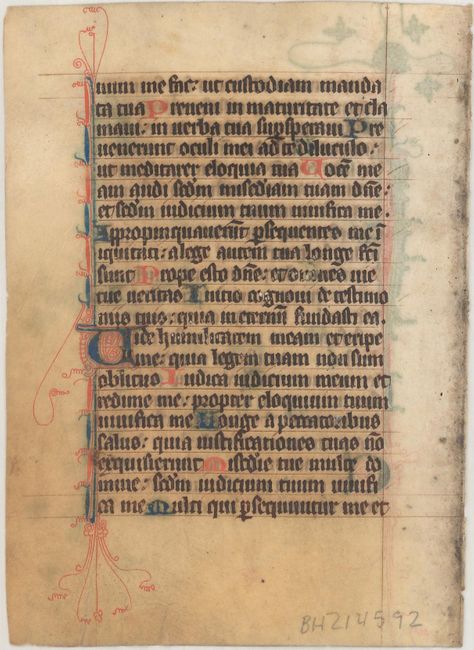 uum me fac: ut custodiam manda
ta tua Preveni in maturitate et cla
mavi: in verba tua supsperavi Pre
venerunt oculi mei ad te diluculo:
ut meditarer eloquia tua Vocē me
am audi scdm misediam tuam dne:
et scdm iudicium tuum vivifica me.
Appropinquaverūt psequentes me ī
iquitati: a lege autem tua longe fci
sunt Prope esto dne: et omnes vie
tue veritas Initio cognovi de testimo
niis tuis: quia in eternū fundasti ea.
Vide humilitatem meam et eripe
me: quia legem tuam non sum
oblitus Iudica iudicium meum et
redime me: propter eloquium tuum
vivifica me Longe a peccatoribus
salus: quia iustificationes tuas nō
exquisierunt Misedie tue multe do
mine: scdm iudicium tuum vivifi
ca me Multi qui psequuntur me et
BH214592